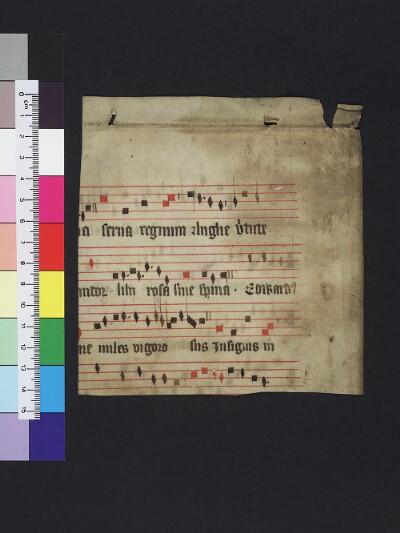 serua regnum Anglie v'tute
andor lilii rosa sine spina . Edward9
ne miles vigoro sus Insignis in